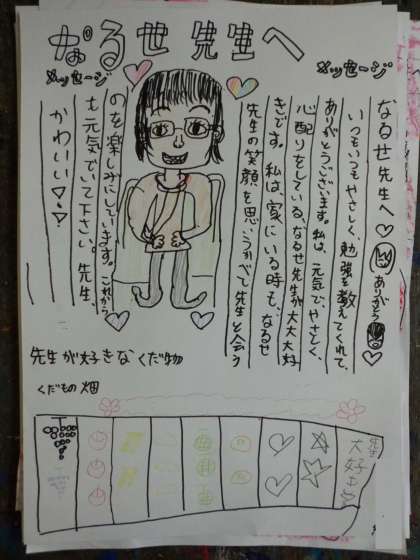 なるせ先生へ
メッセージ
メッセージ
なるせ先生へ♡
ありがとう
いつもいつもやさしく、勉強を教えてくれて、
ありがとうございます。私は、元気で、やさしく、
心配りをしている、なるせ先生が大大大好
きです。私は、家にいる時も、なるせ
先生の笑顔を思いうかべて先生と会う
のを楽しみにしています。これから
も元気でいて下さい。先生、
かわいい♡・♡・!
先生が好きなくだ物
くだもの畑
先生
大好き